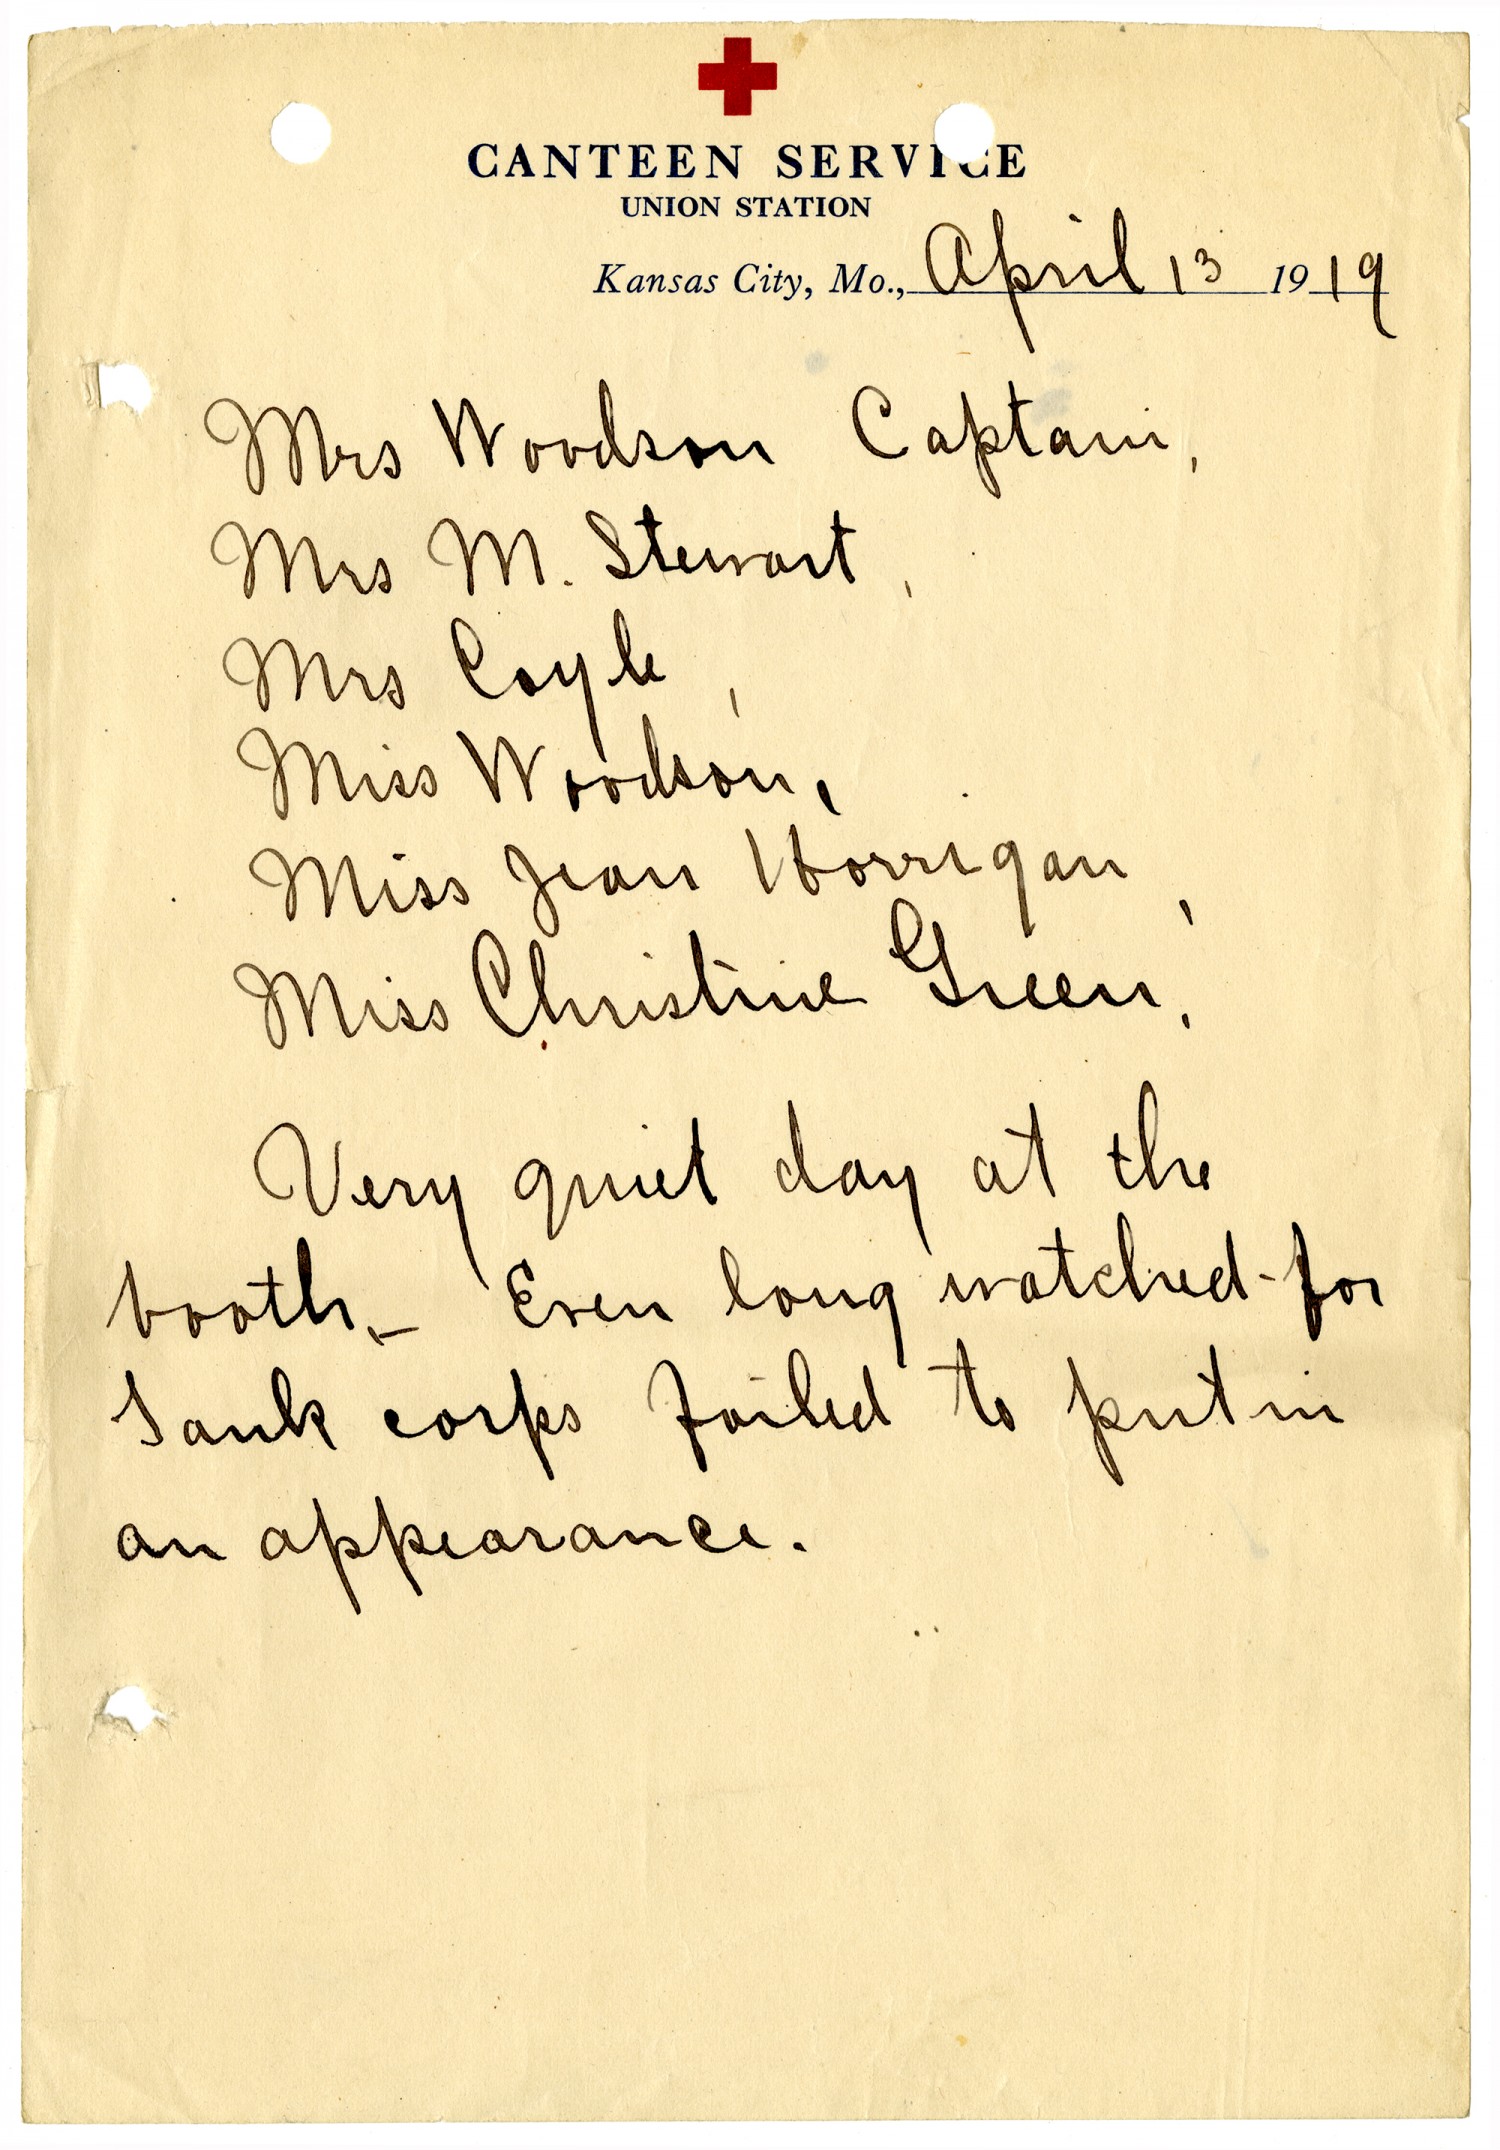 CANTEEN SERVICE
UNION STATION
Kansas City, Mo., April 13 1919
Mrs Woodson Captain,
Mrs M. Stewart,
Mrs Coyle,
Miss Woodson,
Miss Jean Horrigan,
Miss Christine Green,
Very quiet day at the
booth,- Even long watched-for
Tank corps failed to put in
an appearance.